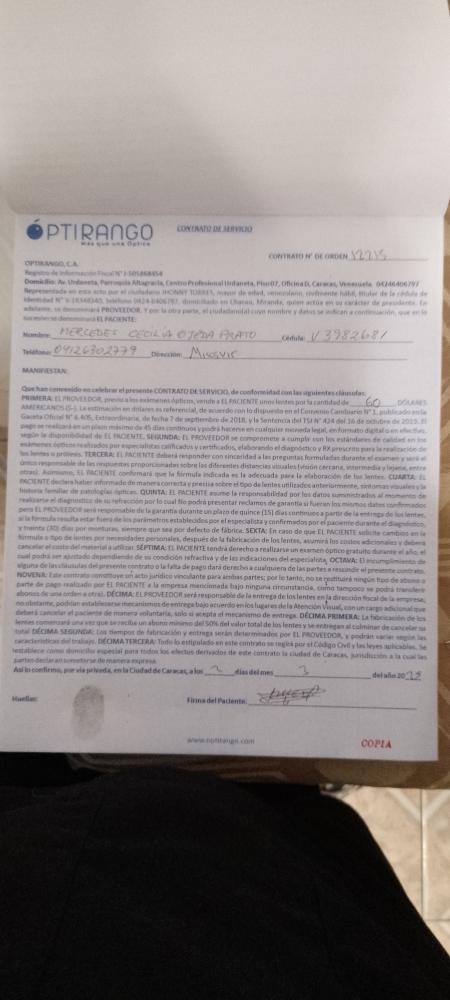 ÓPTIRANGO
Más que una Óptica
CONTRATO DE SERVICIO
CONTRATO N° DE ORDEN
OPTIRANGO, C.A.
Registro de Información Fiscal N° J-505868454
Domicilio: Av. Urdaneta, Parroquia Altagracia, Centro Profesional Urdaneta, Piso 07, Oficina D, Caracas, Venezuela. 04246406797
Representada en este acto por el ciudadano JHONNY TORRES, mayor de edad, venezolano, civilmente hábil, titular de la cédula de
identidad N° V-18348340, teléfono 0424-6406797, domiciliado en Charao, Miranda, quien actúa en su carácter de presidente. En
adelante, se denominará PROVEEDOR. Y por la otra parte, el ciudadano(a) cuyo nombre y datos se indican a continuación, que en lo
sucesivo se denominará EL PACIENTE:
Nombre: MERCEDES CECILIA OJEDA PRATO Cédula: V 3982681
Teléfono: 04126302779 Dirección:
MANIFIESTAN:
Que han convenido en celebrar el presente CONTRATO DE SERVICIO, de conformidad con las siguientes cláusulas:
PRIMERA: EL PROVEEDOR, previo a los exámenes ópticos, vende a EL PACIENTE unos lentes por la cantidad de 60 DÓLARES
AMERICANOS ($-). La estimación en dólares es referencial, de acuerdo con lo dispuesto en el Convenio Cambiario N° 1, publicado en la
Gaceta Oficial N° 6.405, Extraordinaria, de fecha 7 de septiembre de 2018, y la Sentencia del TSJ N° 424 del 16 de octubre de 2019. El
pago se realizará en un plazo máximo de 45 días continuos y podrá hacerse en cualquier moneda legal, en formato digital o en efectivo
según la disponibilidad de EL PACIENTE. SEGUNDA: EL PROVEEDOR se compromete a cumplir con los estándares de calidad en los
exámenes ópticos realizados por especialistas calificados y certificados, elaborando el diagnóstico y RX prescrito para la realización de
los lentes o prótesis. TERCERA: EL PACIENTE deberá responder con sinceridad a las preguntas formuladas durante el examen y será el
único responsable de las respuestas proporcionadas sobre las diferentes distancias visuales (visión cercana, intermedia y lejana, entre
otras). Asimismo, EL PACIENTE confirmará que la fórmula indicada es la adecuada para la elaboración de los lentes. CUARTA: EL
PACIENTE declara haber informado de manera correcta y precisa sobre el tipo de lentes utilizados anteriormente, síntomas visuales y la
historia familiar de patologías ópticas. QUINTA: EL PACIENTE asume la responsabilidad por los datos suministrados al momento de
realizarse el diagnóstico de su refracción por lo cual No podrá presentar reclamos de garantía si fueron los mismos datos confirmados
pero EL PROVEEDOR será responsable de la garantía durante un plazo de quince (15) días continuos a partir de la entrega de los lentes,
si la fórmula resulta estar fuera de los parámetros establecidos por el especialista y confirmados por el paciente durante el diagnóstico,
y treinta (30) días por monturas, siempre que sea por defecto de fábrica. SEXTA: En caso de que EL PACIENTE solicite cambios en la
fórmula o tipo de lentes por necesidades personales, después de la fabricación de los lentes, asumirá los costos adicionales y deberá
cancelar el costo del material a utilizar. SÉPTIMA: EL PACIENTE tendrá derecho a realizarse un examen óptico gratuito durante el año, el
cual podrá ser ajustado dependiendo de su condición refractiva y de las indicaciones del especialista. OCTAVA: El incumplimiento de
alguna de las cláusulas del presente contrato o la falta de pago dará derecho a cualquiera de las partes a rescindir el presente contrato.
NOVENA: Este contrato constituye un acto jurídico vinculante para ambas partes; por lo tanto, no se restituirá ningún tipo de abono o
parte de pago realizado por EL PACIENTE a la empresa mencionada bajo ninguna circunstancia, como tampoco se podrá transferir
abonos de una orden a otra). DÉCIMA: EL PROVEEDOR será responsable de la entrega de los lentes en la dirección fiscal de la empresa;
no obstante, podrían establecerse mecanismos de entrega bajo acuerdo en los lugares de la Atención Visual, con un cargo adicional que
deberá cancelar el paciente de manera voluntaria, solo si acepta el mecanismo de entrega. DÉCIMA PRIMERA: La fabricación de los
lentes comenzará una vez que se recibe un abono mínimo del 50% del valor total de los lentes y se entregan al culminar de cancelar su
total DÉCIMA SEGUNDA: Los tiempos de fabricación y entrega serán determinados por EL PROVEEDOR, y podrán variar según las
características del trabajo. DÉCIMA TERCERA: Todo lo estipulado en este contrato se regirá por el Código Civil y las leyes aplicables. Se
establece como domicilio especial para todos los efectos derivados de este contrato la ciudad de Caracas, jurisdicción a la cual las
partes declaran someterse de manera expresa.
Así lo confirmo, por vía privada, en la Ciudad de Caracas, a los 2 días del mes 3 del año 20
Huellas: Firma del Paciente:
www.optirango.com
COPIA